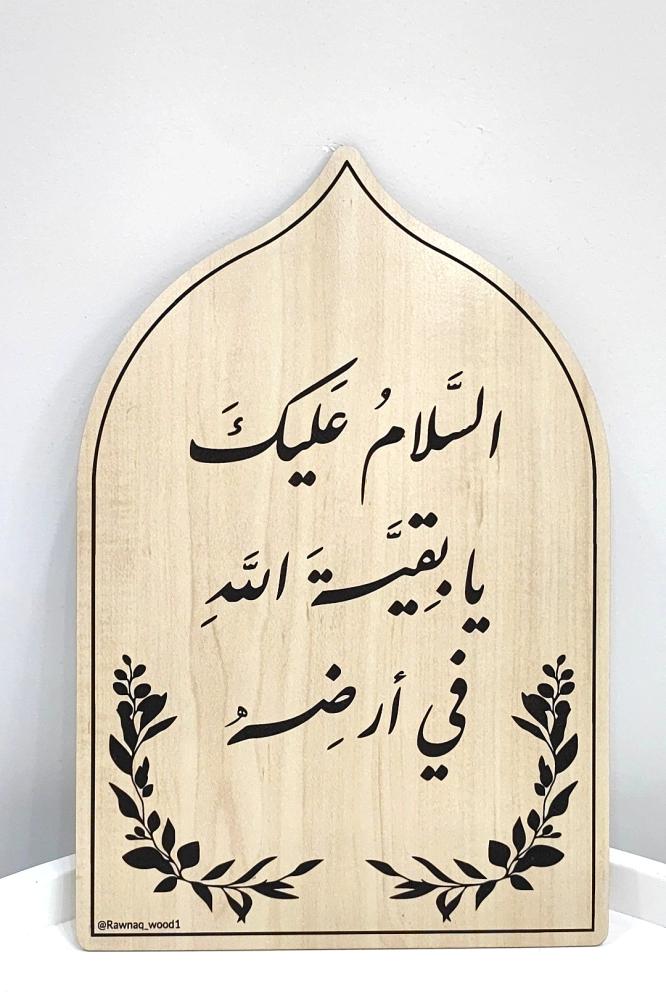 السَّلامُ عَلیكَ
يا بقِيَّةَ اللَّهِ
في أرضِهِ
@Rawnaq_wood1